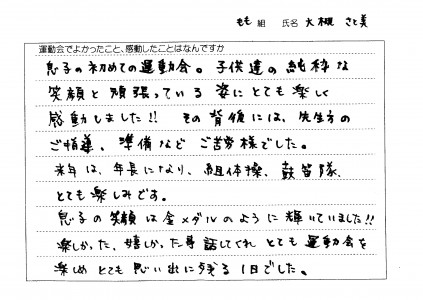 もも 組　氏名 大槻 さと美
運動会でよかったこと、感動したことはなんですか
息子の初めての運動会。子供達の純粋な
笑顔と頑張っている姿にとても楽しく
感動しました!! その背後には、先生方の
ご指導、準備など ご苦労様でした。
来年は、年長になり、組体操、鼓笛隊、
とても楽しみです。
息子の笑顔は金メダルのように輝いていました!!
楽しかった、嬉しかった事話してくれ とても運動会を
楽しめ とても思い出に残る1日でした。